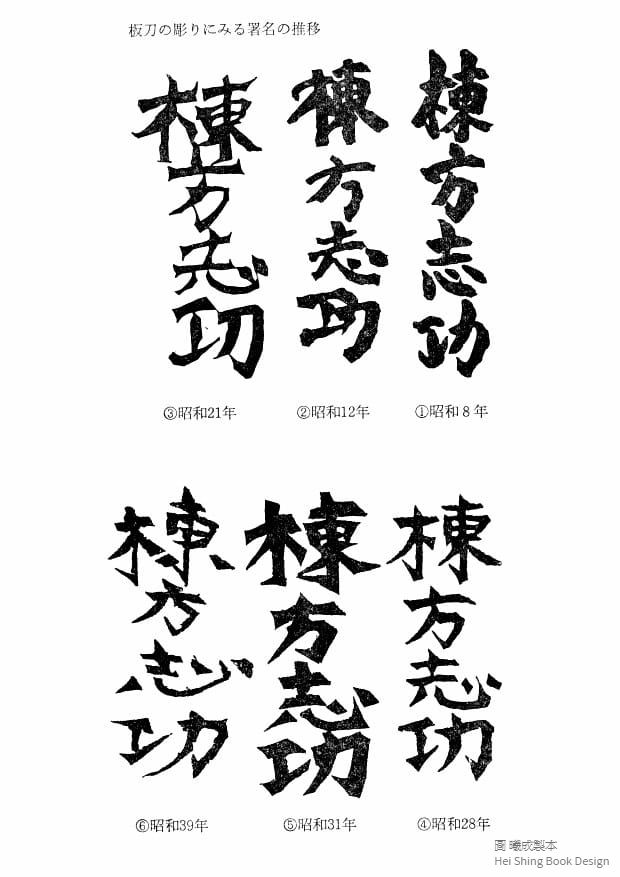 板刀の彫りにみる署名の推移
棟方志功
①昭和8年
棟方志功
②昭和12年
棟方志功
③昭和21年
棟方志功
④昭和28年
棟方志功
⑤昭和31年
棟方志功
⑥昭和39年
圖 曦成製本
Hei Shing Book Design